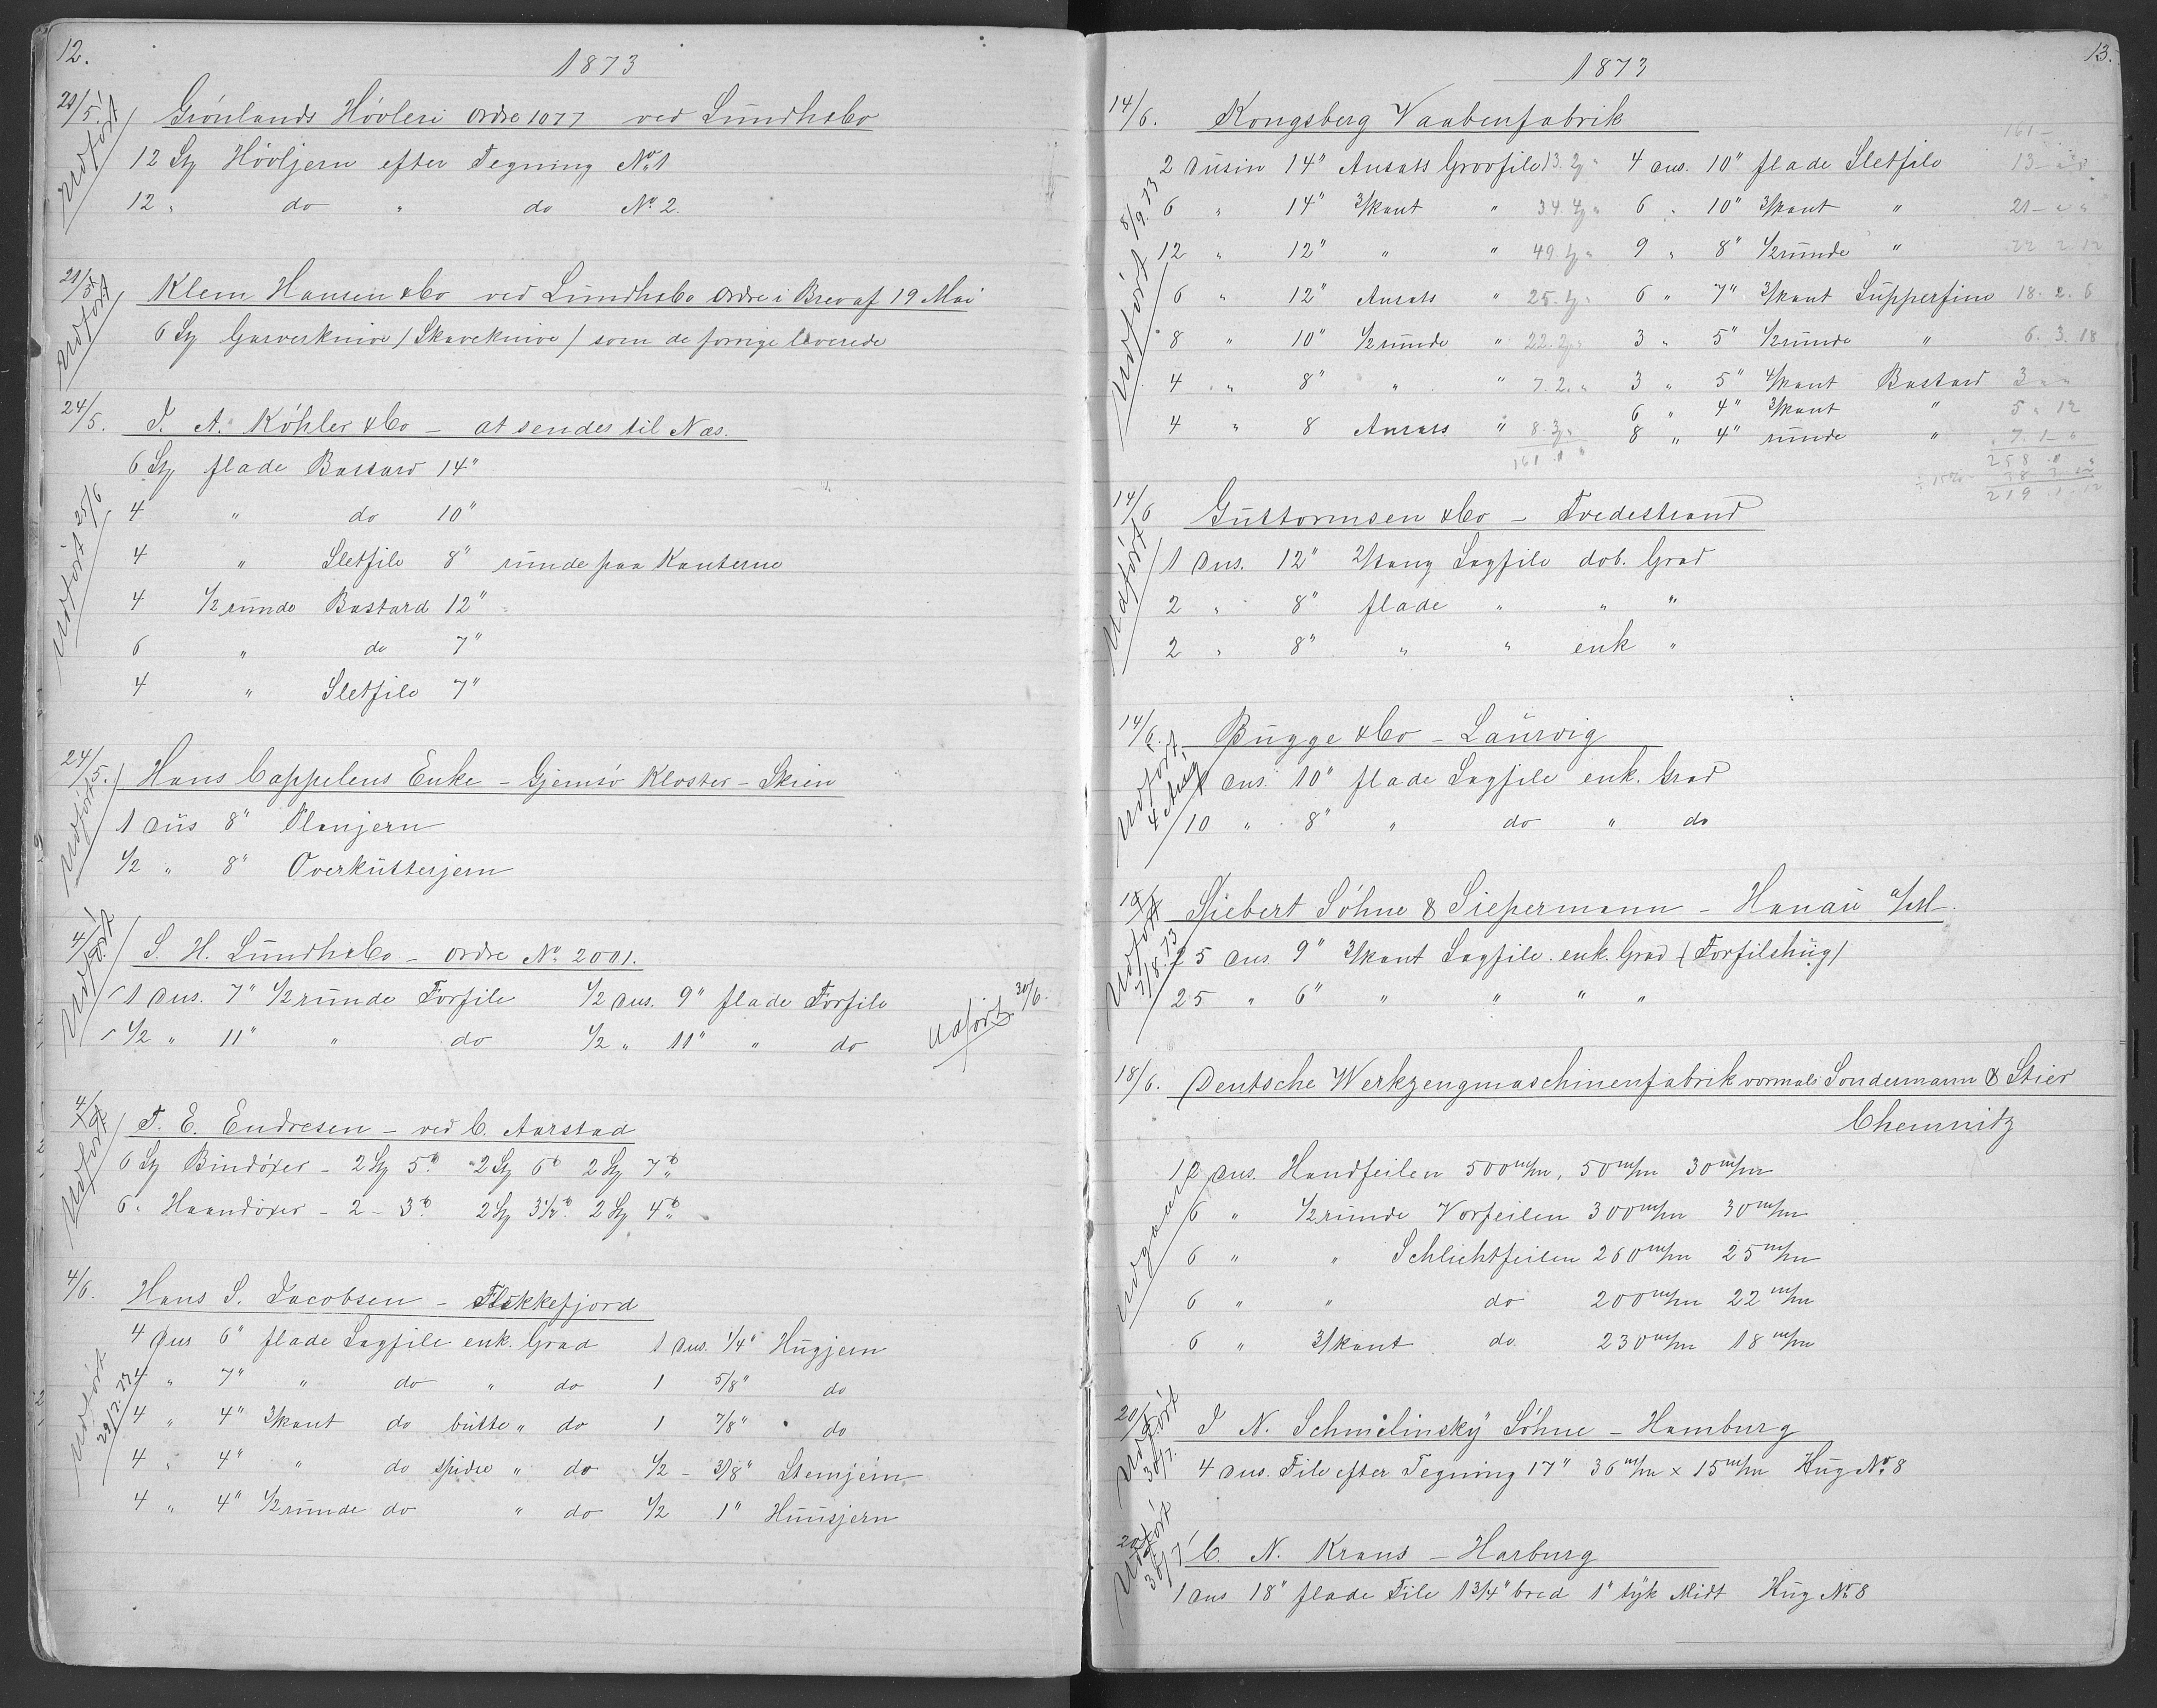 12.
1873
21/5. Grönlands Hövleri Ordre 1077 ved Lundh&Co
Udført
12 St Hövljern efter Tegning No 1
12 " do " do No 2.
21/5. Klem Hansen &Co ved Lundh&Co Ordre i Brev af 19 Mai
Udført
6 St Garverknive / Skaveknive / som de forrige leverede
24/5. J. A. Köhler &Co – at sendes til Næs.
Udført 25/6
6 St flade Bastard 14"
4 " do 10"
4 " Sletfile 8" runde paa Kanterne
4 1/2 runde Bastard 12"
6 " do 7"
4 " Sletfile 7"
24/5. Hans Cappelens Enke – Gjemsö Kloster – Skien
Udført
1 Dus 8" Planjern
1/2 " 8" Overkutterjern
4/6. S. H. Lundh&Co – Ordre No 2001.
Udført
1 Dus. 7" 1/2 runde Forfile 1/2 Dus. 9" flade Forfile
1/2 " 11" " do 1/2 " 11" " do
Udført. 30/6.
4/6. T. E. Endresen – ved C. Aarstad
Udført
6 St Bindöxer – 2 St 5 lb 2 St 6 lb 2 St 7 lb
6 " Haandöxer – 2 – 3 lb 2 St 3 1/2 lb 2 St 4 lb
4/6. Hans S. Jacobsen – Flekkefjord
Udført 29/7.
4 Dus 6" flade Sagfile enk. Grad 1 Dus. 1/4" Hugjern
4 " 7" " do " do 1 5/8" do
4 " 4" 3/kant do butte " do 1 7/8" do
4 " 4" " do spidse " do 1/2 – 3/8" Stemjern
4 " 4" 1/2 runde do " do 1/2 1" Huusjern
13.
1873
14/6. Kongsberg Vaabenfabrik
Udført 8/9. 73
161 –
2 Dusin 14" Ansats Grovfile 4 Dus. 10" flade Sletfile 13
6 " 14" 3/kant " 6 " 10" 3/kant " 21
12 " 12" " " 9 " 8" 1/2 runde " 22 2 12
6 " 12" Ansats " 6 " 7" 3/kant Supperfine 18. 2. 6
8 " 10" 1/2 runde " 3 " 5" 1/2 runde " 6. 3. 18
4 " 8" " " 7. 2. " 3 " 5" 4/kant Bastard 3 " "
6 " 4" 3/kant " 5 " 12
4 " 8 Ansats " 8 " 4" runde " 7. 1 "
161 " "
258 " "
219. 1. 12
14/6 Guttormsen &Co – Tvedestrand
Udført
1 Dus. 12" 2/tang Sagfile dob. Grad
2 " 8" flade " " "
2 " 8" " " enk "
14/6. Bugge &Co – Laurvig
Udført 4 Aug
1 Dus. 10" flade Sagfile enk. Grad
10 " 8" " do " do
Siebert Söhne & Siepermann – Hanau a/M.
Udført 7/8. 73
25 Dus 9" 3/kant Sagfile enk. Grad (Forfilshug)
25 " 6" " " " "
18/6. Deutsche Werkzeugmaschinenfabrik vormals Sondermann & Stier
Chemnitz
Udgaaer
12 Dus. Handfeilen 500 m/m, 50 m/m 30 m/m
6 " 1/2 runde Vorfeilen 300 m/m 30 m/m
6 " " Schlichtfeilen 260 m/m 25 m/m
6 " " do 200 m/m 22 m/m
6 " 3/kant do. 230 m/m 18 m/m
20/6 J. N. Schmilinsky Söhne – Hamburg
Udført 30/7.
4 Dus. File efter Tegning 17" 36 m/m × 15 m/m Hug No 8
20/6 C. N. Kraus – Harburg
Udført 30/7
1 Dus 18" flade File 1 3/4" bred 1" tÿk Midt Hug No 8